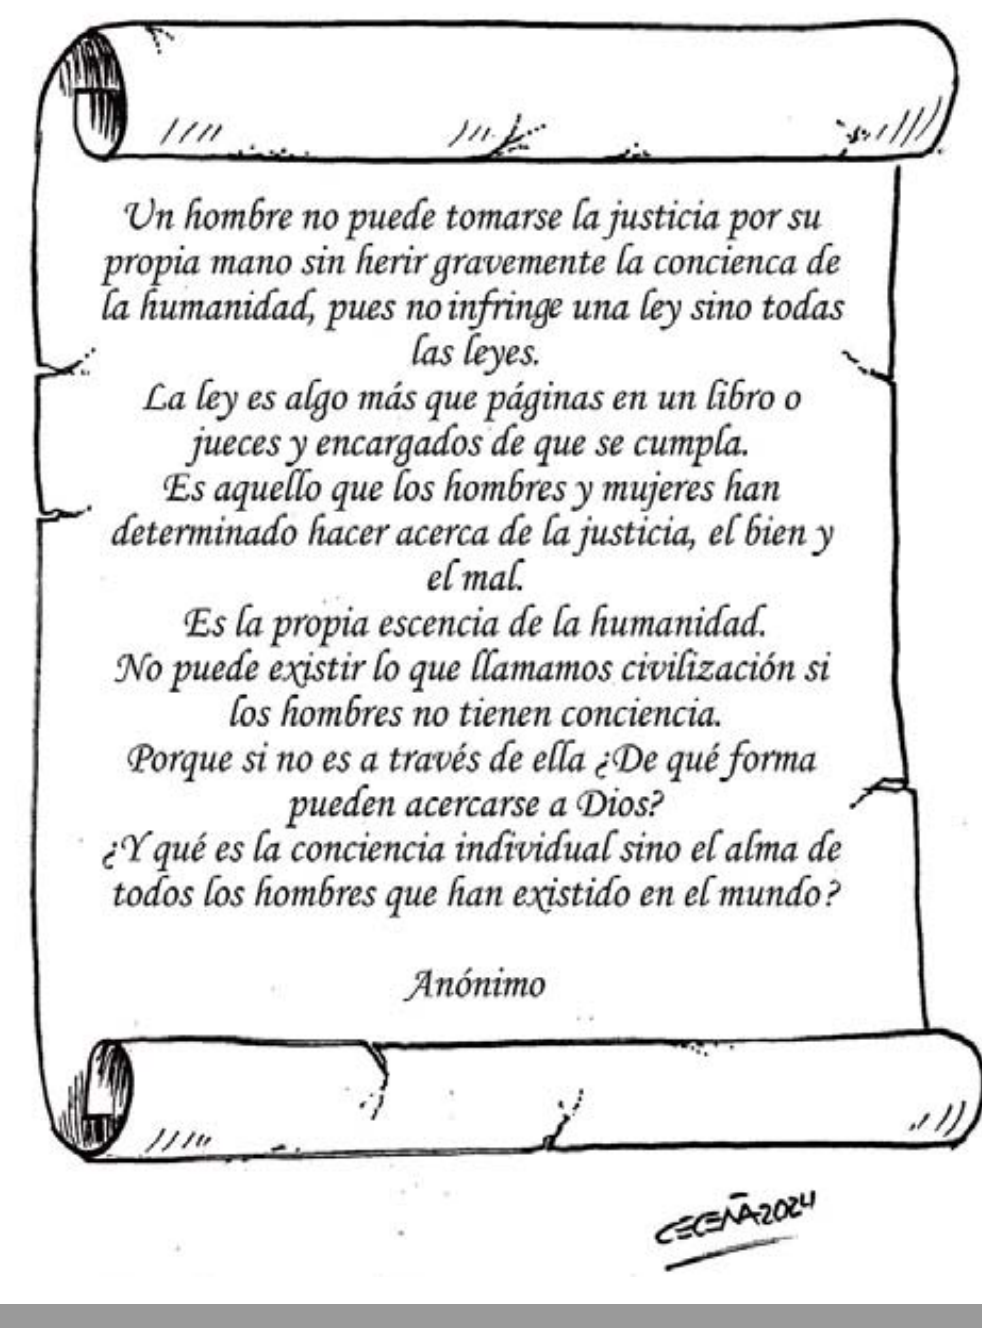 Un hombre no puede tomarse la justicia por su
propia mano sin herir gravemente la concienca de
la humanidad, pues no infringe una ley sino todas
las leyes.
La ley es algo más que páginas en un libro o
jueces y encargados de que se cumpla.
Es aquello que los hombres y mujeres han
determinado hacer acerca de la justicia, el bien y
el mal.
Es la propia escencia de la humanidad.
No puede existir lo que llamamos civilización si
los hombres no tienen conciencia.
Porque si no es a través de ella ¿De qué forma
pueden acercarse a Dios?
¿Y qué es la conciencia individual sino el alma de
todos los hombres que han existido en el mundo?
Anónimo
CECEÑA 2024